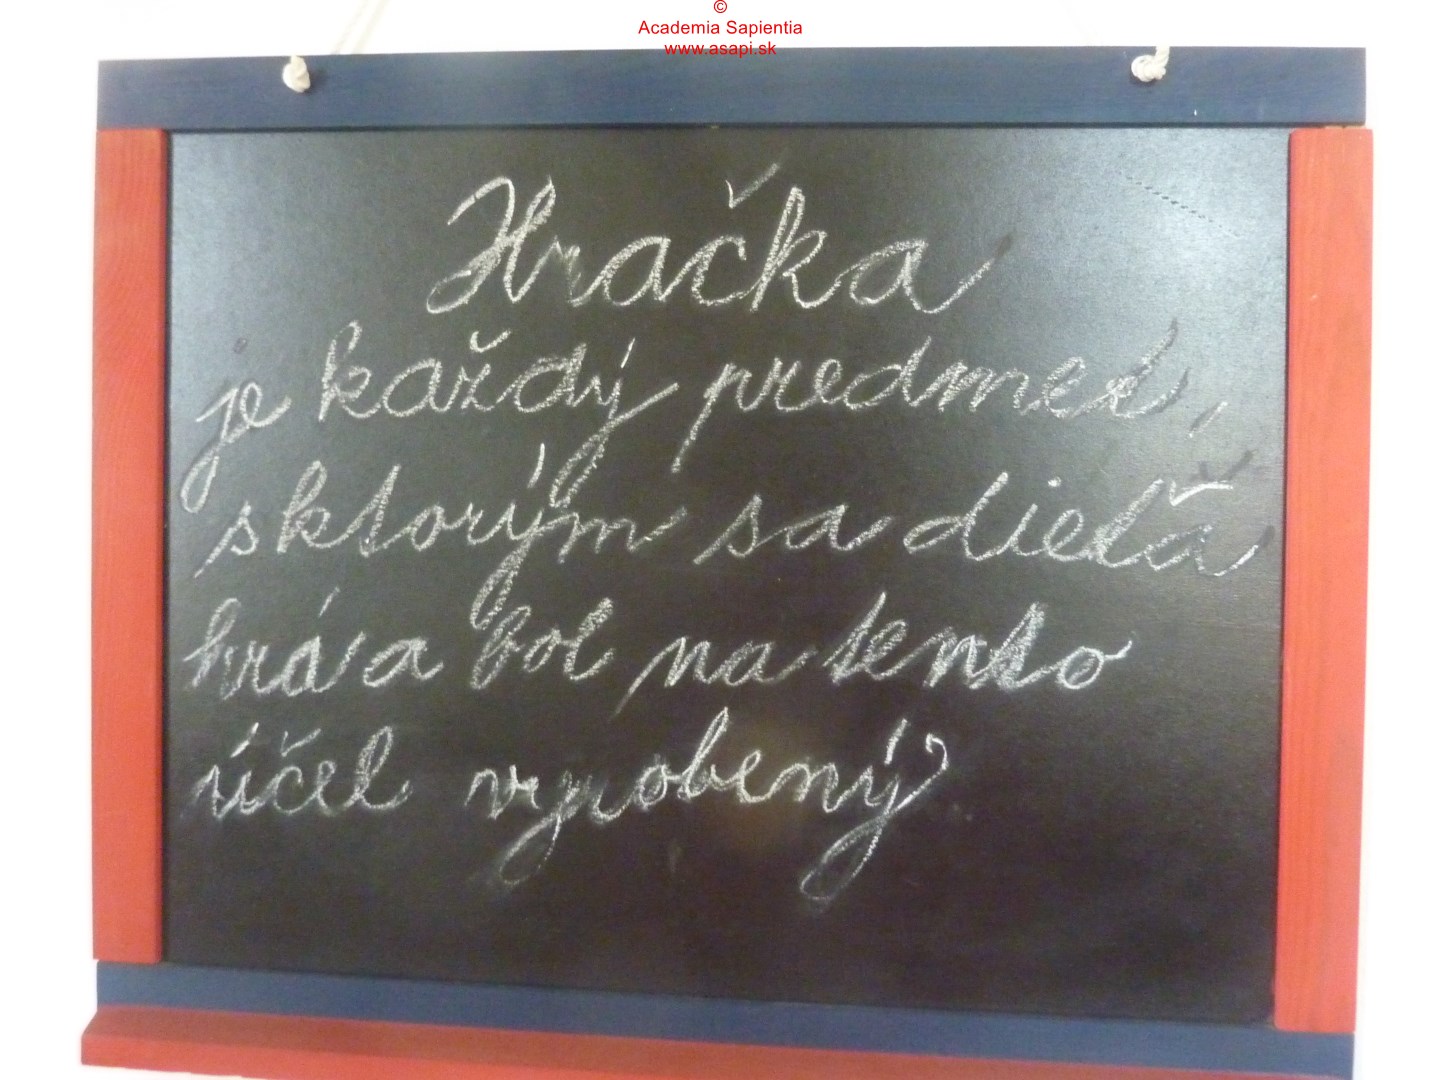 ©
Academia Sapientia
www.asapi.sk
Hračka
je každý predmet,
s ktorým sa dieťa
hrá a bol na tento
účel vyrobený